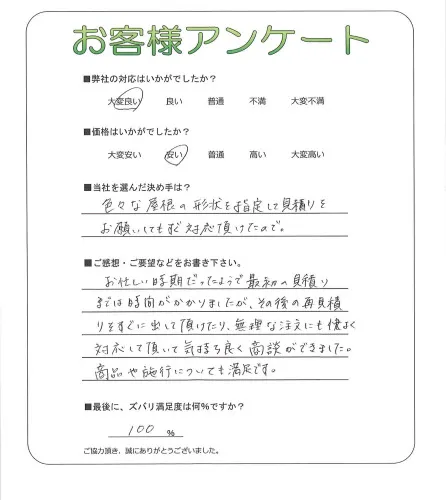 お客様アンケート
■弊社の対応はいかがでしたか?
大変良い 良い 普通 不満 大変不満
■価格はいかがでしたか?
大変安い 安い 普通 高い 大変高い
■当社を選んだ決め手は?
色々な屋根の形状を指定して見積りを
お願いしてもすぐ対応頂けたので。
■ご感想・ご要望などをお書き下さい。
お忙しい時期だったようで最初の見積り
までは時間がかかりましたが、その後の再見積
りをすぐに出して頂けたり、無理な注文にも快よく
対応して頂いて気持ち良く商談ができました。
商品や施行についても満足です。
■最後に、ズバリ満足度は何%ですか?
100 %
ご協力頂き、誠にありがとうございました。